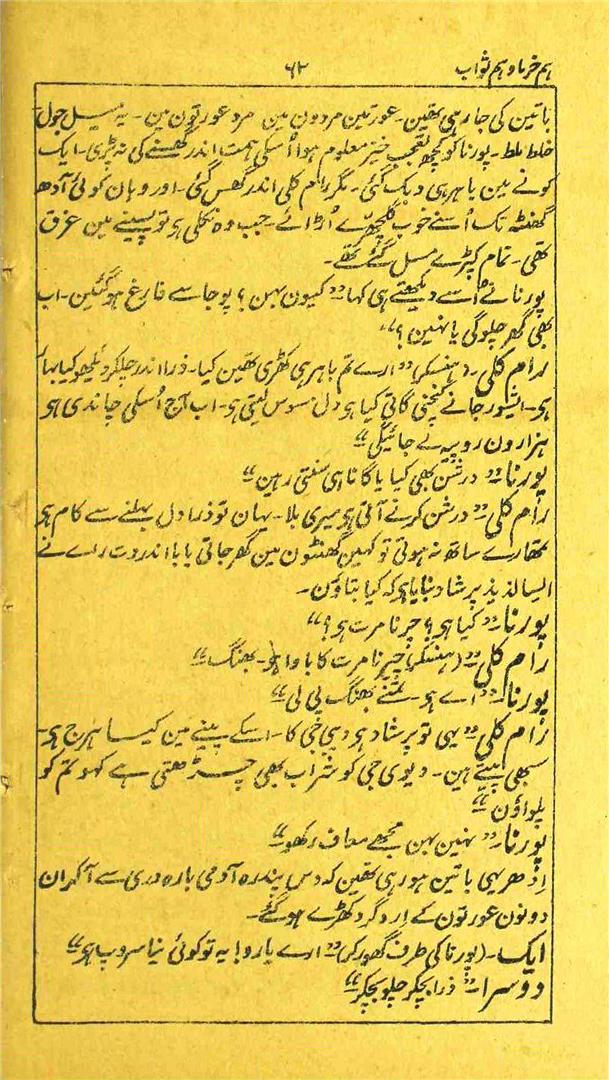 ہم خرما و ہم ثواب ۶۲
باتین کی جا رہی تھین۔ عورتین مردون مین مرد عورتون مین۔ یہ میل جول
خلط ملط۔ پورنا کو کچھ تعجب خیز معلوم ہوا اُسکی ہمت اندر گھسنے کی نہ پڑی۔ ایک
کونے مین باہر ہی دبک گئی۔ مگر رام کلی اندر گھس گئی۔ اور وہان کوئی آدھ
گھنٹہ تک اُسنے خوب گلچھرّے اُڑائے۔ جب وہ نکلی ہو تو پسینے مین غرق
تھی۔ تمام کپڑے مسل گئے تھے۔
پورنا نے اُسے دیکھتے ہی کہا ”کیون بہن؟ پوجا سے فارغ ہو گئین۔ اب
بھی گھر چلوگی یا نہین؟“
رام کلی۔ (ہنسکر) ”ارے تم باہر ہی کھڑی تھین کیا۔ ذرا اندر چلکر دیکھو کیا بہار
ہو۔ ایشور جانے کنچنی گاتی کیا ہو دل مسوس لیتی ہو۔ اب آج اُسکی چاندی ہو
ہزارون روپیہ لے جائیگی“
پورنا۔ ”درشن بھی کیا یا گانا ہی سنتی رہین“
رام کلی۔ ”درشن کرنے آئی ہو میری بلا۔ یہان تو ذرا دل بہلنے سے کام ہو
تمھارے ساتھ نہ ہوتی تو کہین گھنٹون مین گھر جاتی بابا اندردت راے نے
ایسا لذیذ پرشاد بنایا ہو کہ کیا بتاؤن۔
پورنا۔ ”کیا ہو؟ چرنامرت ہو؟“
رام کلی۔ ”(ہنسکر) چرنامرت کا باوا ہو۔ بھنگ“
پورنا۔ ”اے ہو۔ تمنے بھنگ پی لی“
رام کلی۔ ”یہی تو پرشاد ہو دیبی جی کا۔ اسکے پینے مین کیسا ہرج ہو۔
سبھی پیتے ہین۔ دیوی جی کو شراب بھی چڑھتی ہے کہو تم کو
پلواؤن“
پورنا۔ ”نہین بہن مجھے معاف رکھو“
اِدھر یہی باتین ہو رہی تھین کہ دس پندرہ آدمی بارہ دری سے آکر ان
دونون عورتون کے اردگرد کھڑے ہو گئے۔
ایک۔ (پورنا کی طرف گھور کر) ”ارے یارو! یہ تو کوئی نیا سروپ ہو“
دوسرا۔ ”ذرا بچکر چلو بچکر“